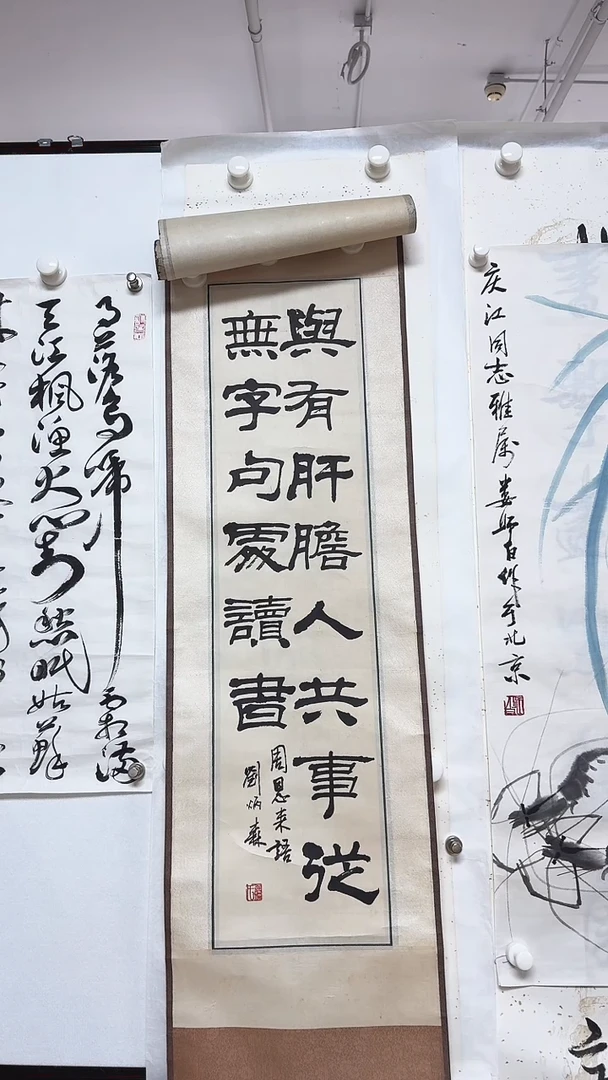 庆江同志雅属娄师白作于北京
與有肝膽人共事從
無字句處讀書
周恩来語
劉炳森
月落乌啼霜满
天江枫渔火对愁眠姑苏